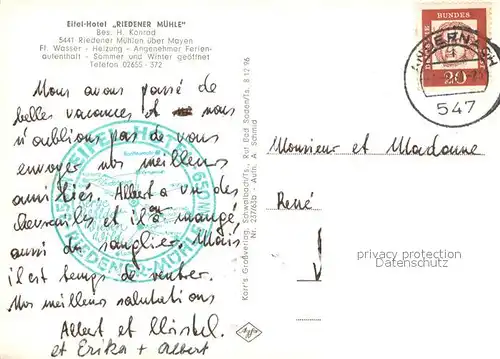 Eifel-Hotel „RIEDENER MÜHLE"
Bes. H. Konrad
5441 Riedener Mühlen über Mayen
Fl. Wasser - Heizung - Angenehmer Ferien-
aufenthalt - Sommer und Winter geöffnet
Telefon 02655 - 372
Nous avons passé de
belles vacances et nous
n'oublions pas de vous
envoyer nos meilleurs
amitiés. Albert a vu des
chevreuils et il a mangé
aussi du sanglier. Mais
il est temps de rentrer.
Nos meilleurs salutations
Albert et Christel.
et Erika + Albert
EIFEL-HOTEL
RIEDENER-MÜHLE
Karr's Großverlag, Schwalbach/Ts., Ruf Bad Soden/Ts. 8 12 96
Nr. 537/63b - Aufn. A. Schmid
Agfa
BUNDES
20
ANDERNACH
547
Monsieur et Madame
René
privacy protection